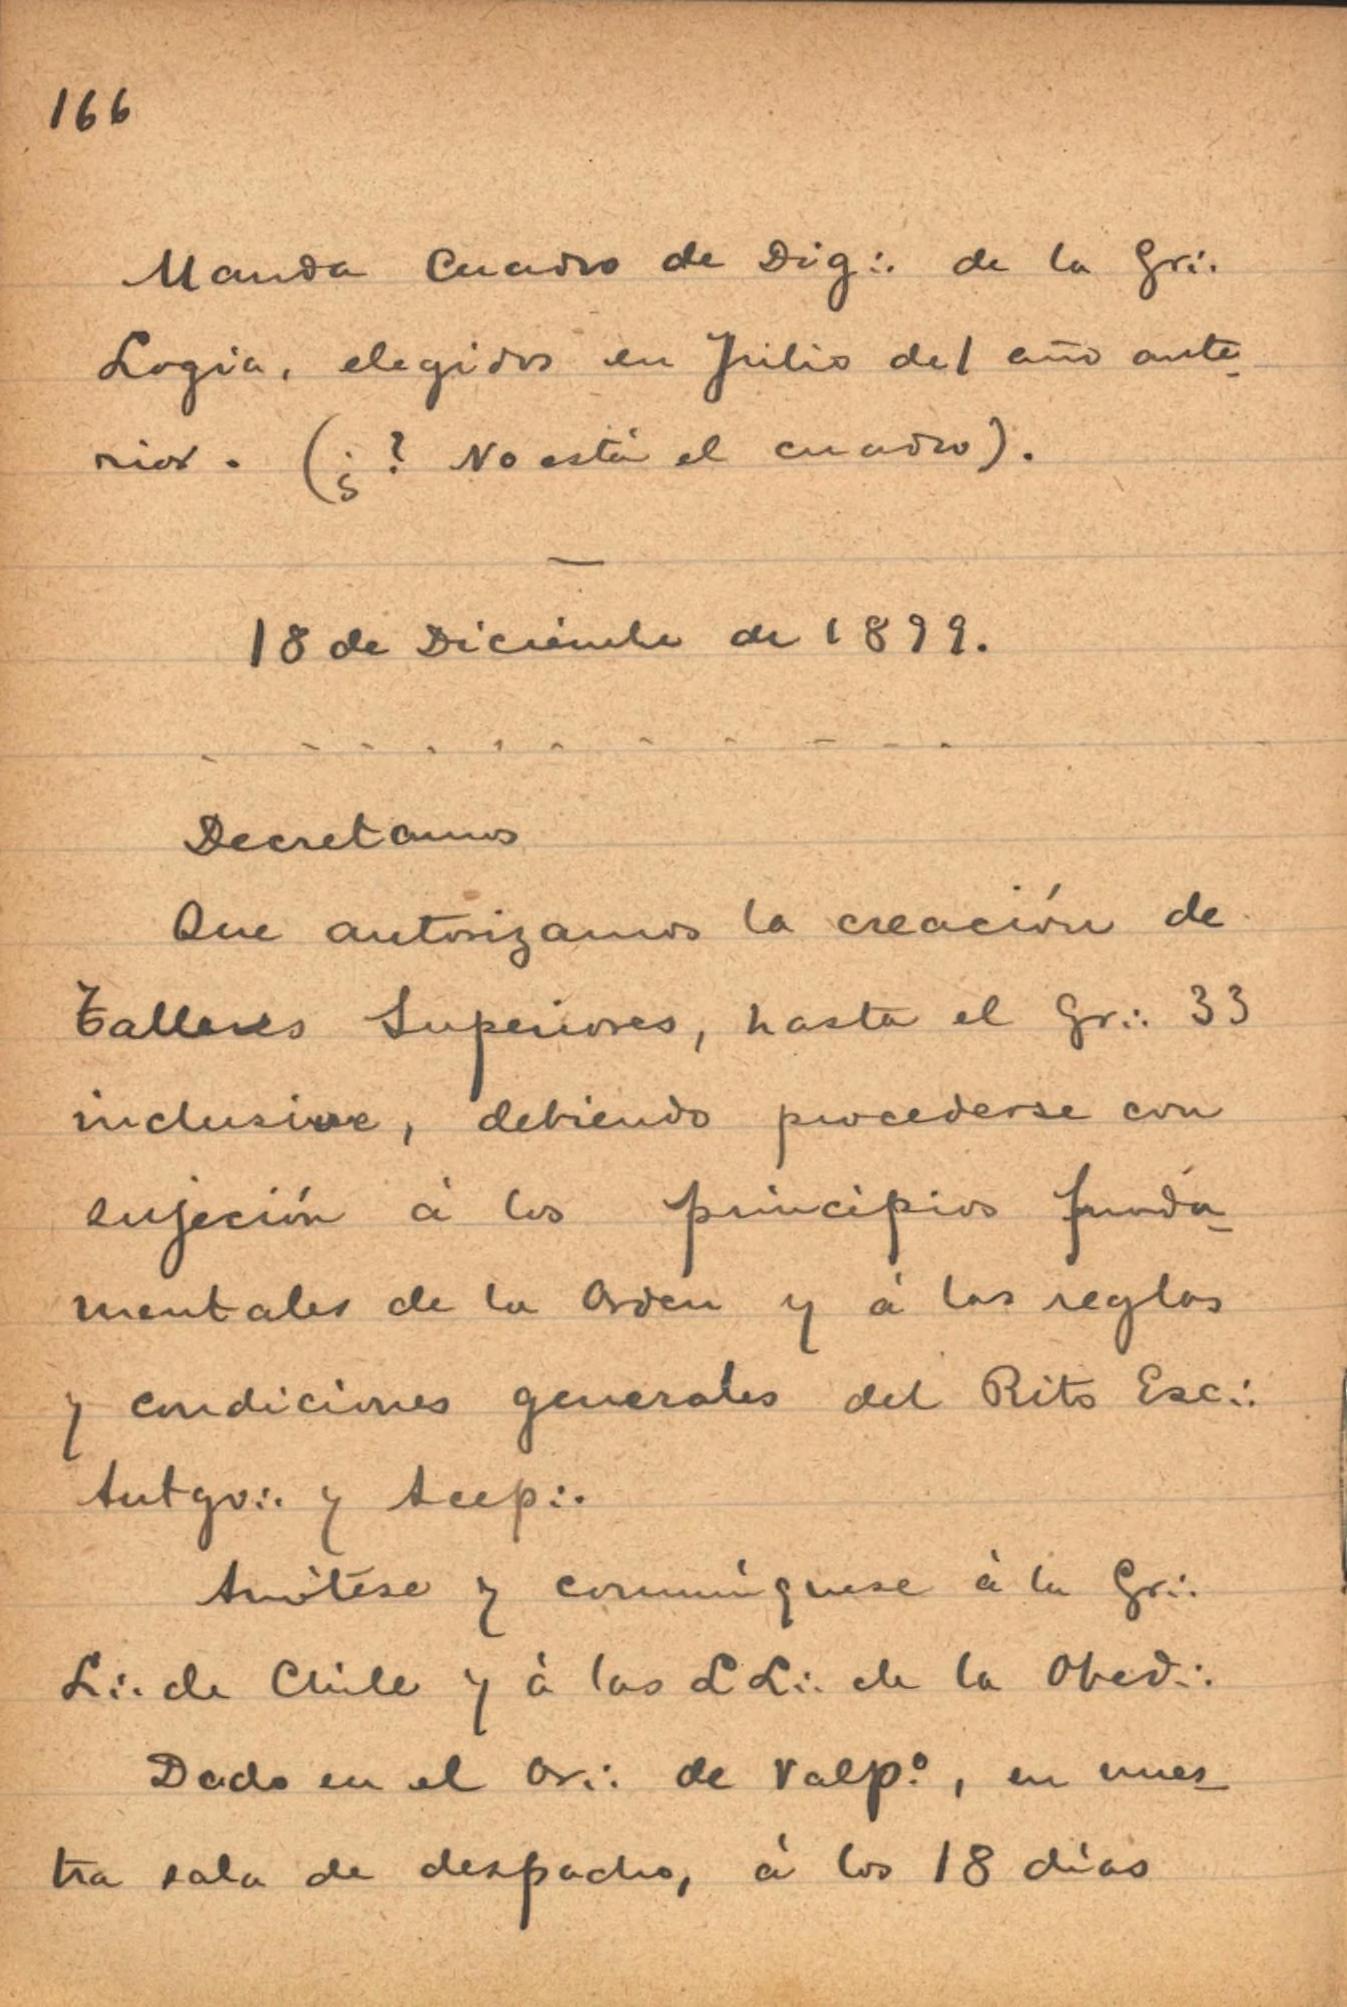 166
Manda Cuadro de Dig∴ de la Gr∴
Logia, elegidos en Julio del año ante-
rior. (¿? No está el cuadro).
—
18 de Diciembre de 1899.
. - - . - - - - - - - .
Decretamos
Que autorizamos la creación de
Talleres Superiores, hasta el Gr∴ 33
inclusive, debiendo procederse con
sujeción á los principios funda-
mentales de la Orden y á las reglas
y condiciones generales del Rito Esc∴
Antgo∴ y Acep∴
Anótese y comuníquese á la Gr∴
L∴ de Chile y á las LL∴ de la Obed∴
Dado en el Or∴ de Valpº, en nues-
tra sala de despacho, á los 18 días